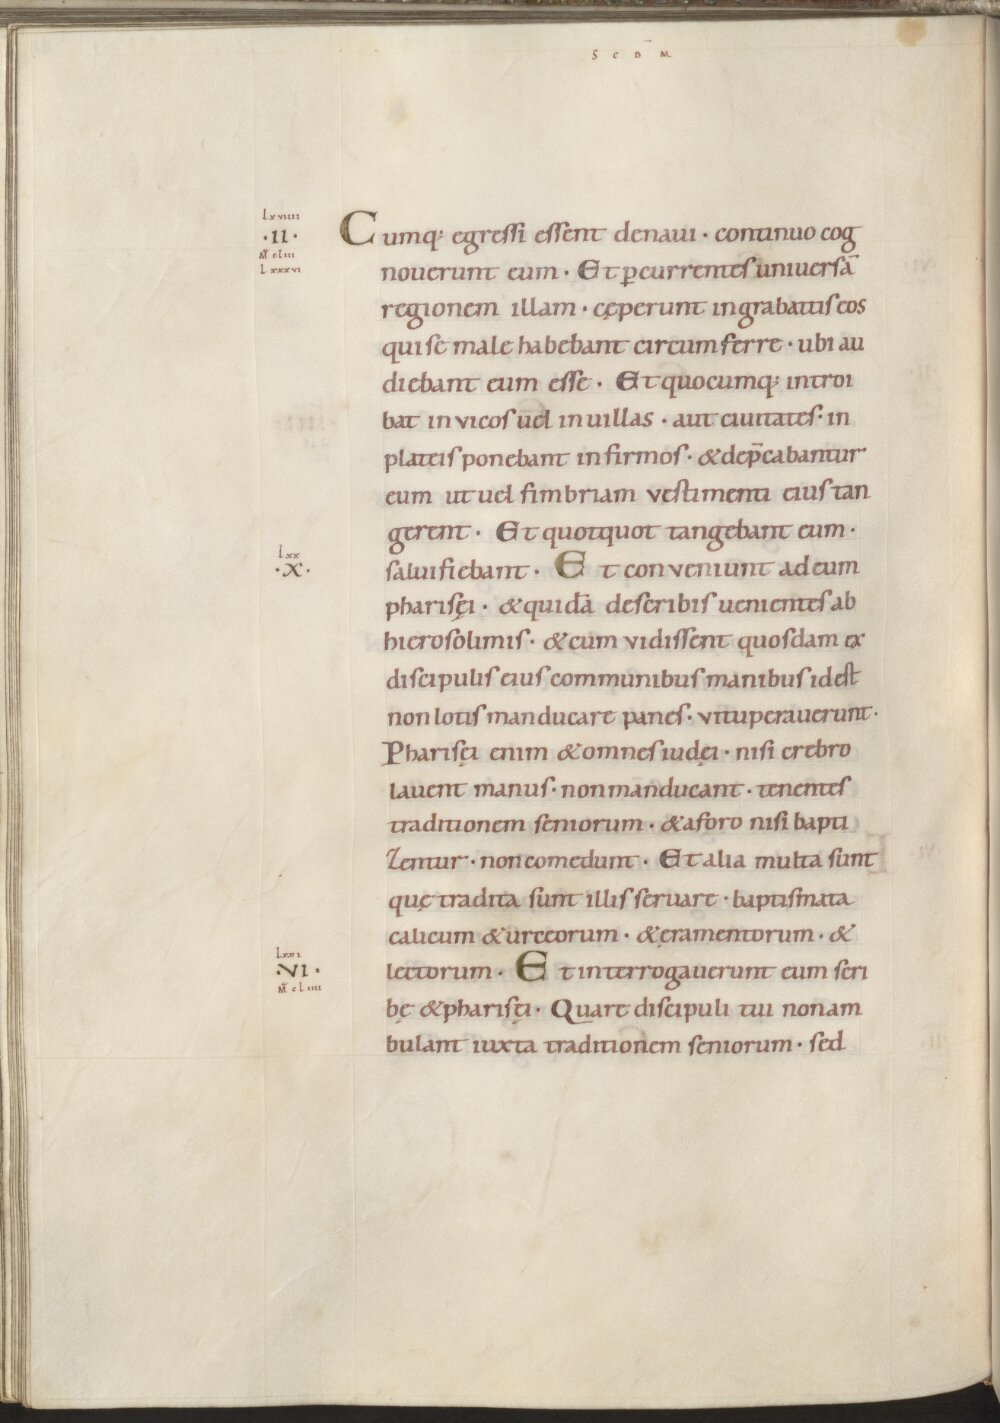 SCDM̅
lxviiii
·II·
M̅ cliii
lxxxvi
Cumq; egressi essent denaui · continuo cog
nouerunt eum · Et p̲currentes uniuersā
regionem illam · cęperunt ingrabattis eos
qui se male habebant circumferre · ubi au
diebant eum esse · Et quocumq; introi
bat in vicos uel inuillas · aut ciuitates · in
plateis ponebant infirmos · & dep̄cabantur
eum ut uel fimbriam vestimenti eius tan
gerent · Et quotquot tangebant eum ·
lxx
·X·
salui fiebant · Et conveniunt ad eum
pharisęi · & quidā de scribis uenientes ab
hierosolimis · & cum vidissent quosdam ex
discipulis eius communibus manibus id est
non lotis manducare panes · vituperauerunt ·
Pharisęi enim & omnes iudęi · nisi crebro
lauent manus · non manducant · tenentes
traditionem seniorum · & aforo nisi bapti
zentur · non comedunt · Et alia multa sunt
quę tradita sunt illis seruare · baptismata
calicum & urceorum · & ęramentorum · &
lxxi
·VI·
M̅ cliiii
lectorum · Et interrogauerunt eum scri
bę & pharisęi · Quare discipuli tui non am
bulant iuxta traditionem seniorum · sed